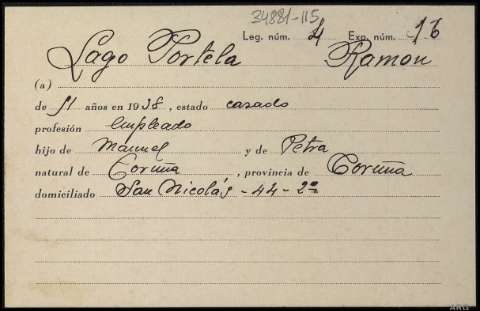 34881-115
Leg. núm. 4 Exp. núm. 16
Lago Portela Ramon
(a)
de 51 años en 1938, estado casado
profesión Empleado
hijo de Manuel y de Petra
natural de Coruña, provincia de Coruña
domiciliado San Nicolás - 44 - 2º